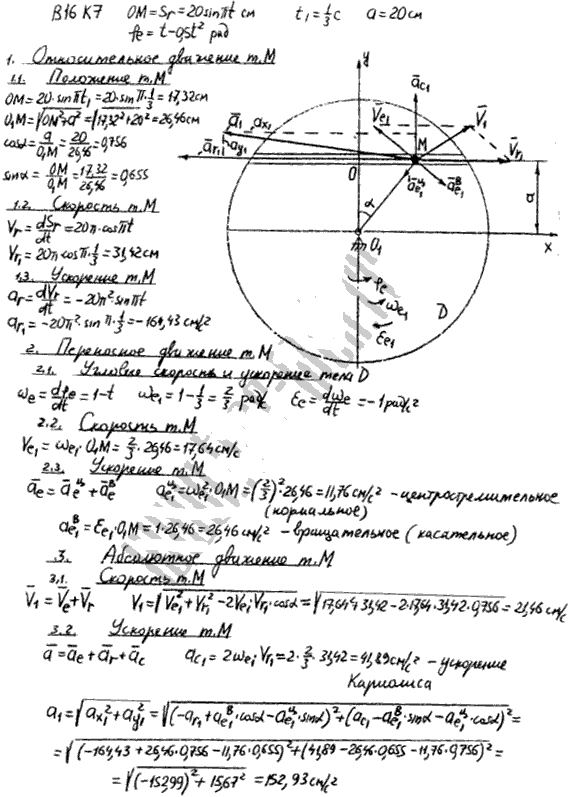 В16 К7 OM=Sr=20sinπt см t₁=⅓c a=20см
φe=t-0,5t² рад
1. Относительное движение т.М
1.1. Положение т.М
OM=20·sinπt₁=20·sinπ·⅓=17,32см
O₁M=√(OM²+a²)=√(17,32²+20²)=26,46см
cosα=a/O₁M=20/26,46=0,756
sinα=OM/O₁M=17,32/26,46=0,655
1.2. Скорость т.М
Vr=dSr/dt=20π·cosπt
Vr₁=20π·cosπ·⅓=31,42см
1.3. Ускорение т.М
ar=dVr/dt=-20π²·sinπt
ar₁=-20π²·sinπ·⅓=-164,43 см/с²
y
āc₁
V̄e₁
V̄₁
ā₁
ax₁
ār₁
ay₁
M
V̄r₁
O
āe₁ᵸ
āe₁ᴮ
α
a
O₁
x
φe
ωe₁
εe₁
D
2. Переносное движение т.М
2.1. Угловые скорость и ускорение тела D
ωe=dφe/dt=1-t ωe₁=1-⅓=⅔ рад/с εe=dωe/dt=-1рад/с²
2.2. Скорость т.М
Ve₁=ωe₁·O₁M=⅔·26,46=17,64см/с
2.3. Ускорение т.М
āe=āeц+āeв ae₁ц=ωe₁²·O₁M=(⅔)²·26,46=11,76 см/с² -центростремительное
(нормальное)
ae₁в=εe₁·O₁M=1·26,46=26,46 см/с² -вращательное (касательное)
3. Абсолютное движение т.М
3.1. Скорость т.М
V̄₁=V̄e+V̄r V₁=√(Ve₁²+Vr₁²-2Ve₁Vr₁·cosα)=√(17,64²+31,42-2·17,64·31,42·0,756)=21,46 см/с
3.2. Ускорение т.М
ā=āe+ār+āc ac₁=2ωe₁Vr₁=2·⅔·31,42=41,89см/с² -ускорение
Кариолиса
a₁=√(ax₁²+ay₁²)=√((-ar₁+ae₁в·cosα-ae₁ц·sinα)²+(ac₁-ae₁в·sinα-ae₁ц·cosα)²)=
=√((-164,43+26,46·0,756-11,76·0,655)²+(41,89-26,46·0,655-11,76·0,756)²)=
=√((-152,99)²+15,67²)=152,93см/с²